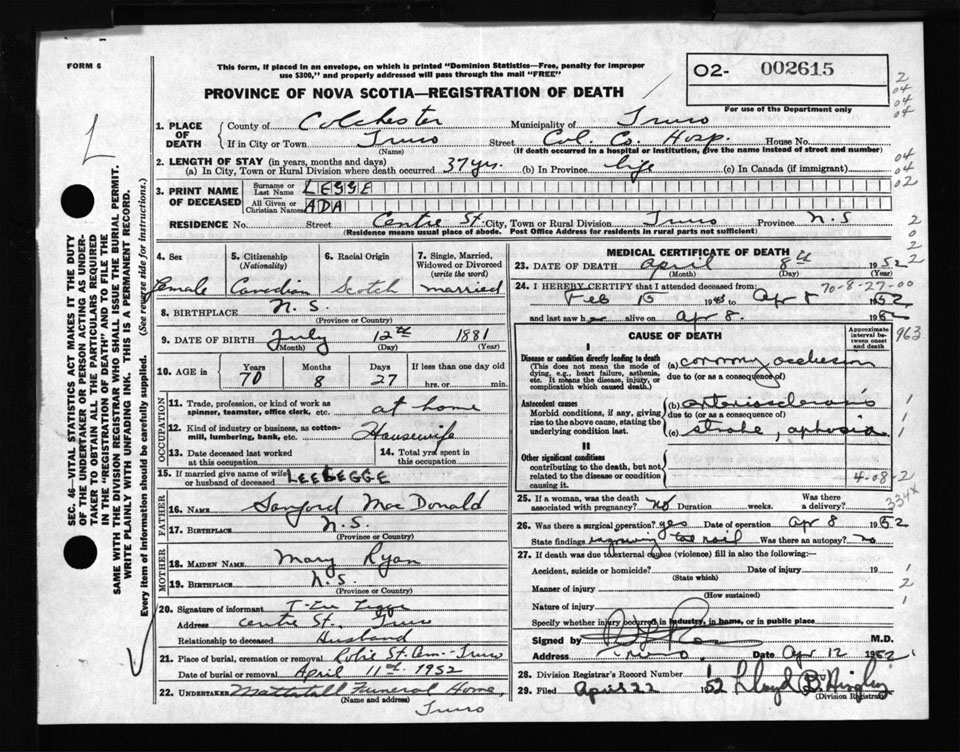 FORM 6
This form, if placed in an envelope, on which is printed "Dominion Statistics—Free, penalty for improper
use $300," and properly addressed will pass through the mail "FREE"
O2- 002615
PROVINCE OF NOVA SCOTIA—REGISTRATION OF DEATH
For use of the Department only
1. PLACE OF DEATH County of Colchester Municipality of Truro
If in City or Town Truro Street Col. Co. Hosp. House No.
(Name) (If death occurred in a hospital or institution, give the name instead of street and number)
2. LENGTH OF STAY (in years, months and days)
(a) In City, Town or Rural Division where death occurred 37 yrs. (b) In Province life (c) In Canada (if immigrant)
3. PRINT NAME OF DECEASED Surname or Last Name LEGGE
All Given or Christian Names ADA
RESIDENCE No. Street Centre St. City, Town or Rural Division Truro Province N.S
(Residence means usual place of abode. Post Office Address for residents in rural parts not sufficient)
4. Sex 5. Citizenship (Nationality) 6. Racial Origin 7. Single, Married, Widowed or Divorced (write the word)
Female Canadian Scotch married
8. BIRTHPLACE N.S.
(Province or Country)
9. DATE OF BIRTH July 12th 1881
(Month) (Day) (Year)
10. AGE in Years Months Days If less than one day old
70 8 27 hrs. or min.
OCCUPATION
11. Trade, profession, or kind of work as spinner, teamster, office clerk, etc. at home
12. Kind of industry or business, as cotton-mill, lumbering, bank, etc. Housewife
13. Date deceased last worked at this occupation 14. Total yrs. spent in this occupation
15. If married give name of wife or husband of deceased LEE LEGGE
FATHER
16. NAME Sanford MacDonald
17. BIRTHPLACE N.S.
(Province or Country)
MOTHER
18. MAIDEN NAME Mary Ryan
19. BIRTHPLACE N.S.
(Province or Country)
20. Signature of informant Legge
Address Centre St. Truro
Relationship to deceased Husband
21. Place of burial, cremation or removal Robie St. Cem. Truro
Date of burial or removal April 11th 1952
22. UNDERTAKER Mattatall Funeral Home,
(Name and address) Truro
MEDICAL CERTIFICATE OF DEATH
23. DATE OF DEATH April 8th 1952
(Month) (Day) (Year)
24. I HEREBY CERTIFY that I attended deceased from: 70-8-27-00
Feb 15 19 to Apr 8 1952
and last saw her alive on Apr 8. 1952
CAUSE OF DEATH Approximate interval between onset and death 963
I
Disease or condition directly leading to death (a) coronary occlusion
(This does not mean the mode of dying, e.g., heart failure, asthenia, etc. It means the disease, injury, or complication which caused death.) due to (or as a consequence of)
Antecedent causes (b) arteriosclerosis
Morbid conditions, if any, giving rise to the above cause, stating the underlying condition last. due to (or as a consequence of)
(c) stroke, aphasia
II
Other significant conditions contributing to the death, but not related to the disease or condition causing it. 4-08-2
25. If a woman, was the death associated with pregnancy? no Duration weeks. Was there a delivery?
26. Was there a surgical operation? yes Date of operation Apr 8 1952
State findings ingrowing toe nail Was there an autopsy? no
27. If death was due to external causes (violence) fill in also the following:—
Accident, suicide or homicide? Date of injury 19
(State which)
Manner of injury
(How sustained)
Nature of injury
Specify whether injury occurred in industry, in home, or in public place
Signed by M.D.
Address Truro. Date Apr 12 1952
28. Division Registrar's Record Number
29. Filed April 22 1952 Lloyd B.
(Division Registrar)
SEC. 46—VITAL STATISTICS ACT MAKES IT THE DUTY
OF THE UNDERTAKER OR PERSON ACTING AS UNDER-
TAKER TO OBTAIN ALL THE PARTICULARS REQUIRED
IN THE "REGISTRATION OF DEATH" AND TO FILE THE
SAME WITH THE DIVISION REGISTRAR WHO SHALL ISSUE THE BURIAL PERMIT.
WRITE PLAINLY WITH UNFADING INK. THIS IS A PERMANENT RECORD.
Every item of information should be carefully supplied. (See reverse side for instructions.)